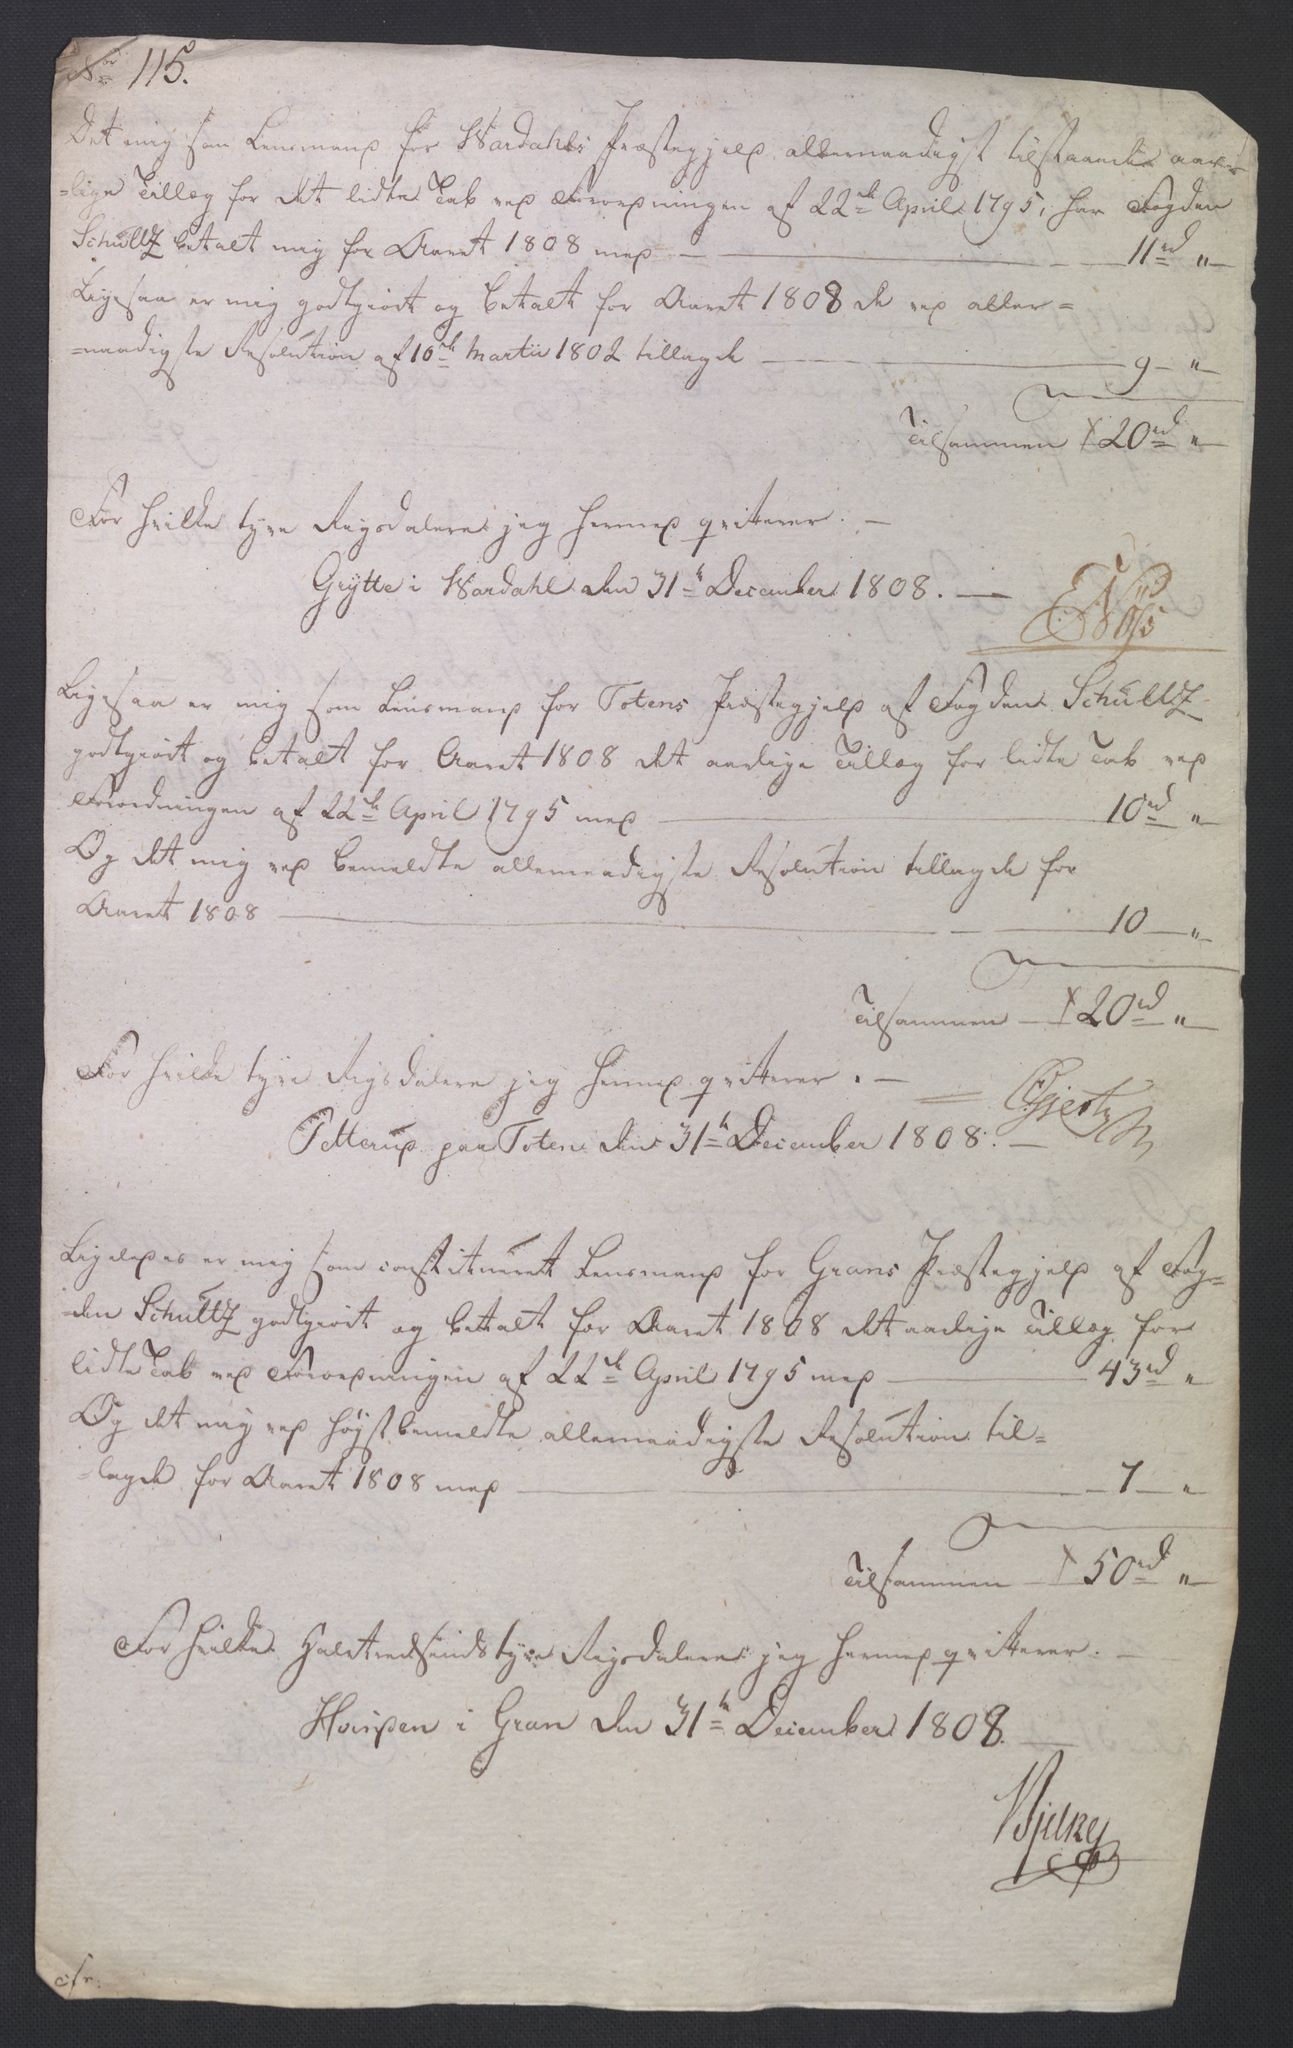 No 115.
Det mig som Lensmand for Wardahls Præstegjeld allernaadigst tilstaaende aar-
-lige Tillæg for det lidte Tab ved Forordningen af 22de April 1795, har Fogden
Schultz betalt mig for Aaret 1808 med — 11 rd "
Ligesaa er mig godtgiort og betalt for Aaret 1808 de ved aller=
-naadigste Resolution af 10de Martii 1802 tillagde — 9 — "
Tilsammen 20 rd "
For hvilke tyve Rigsdalere jeg hermed qvitterer. —
Grytte i Wardahl den 31te December 1808. —
Ligesaa er mig som Lensmand for Totens Præstegjeld af Fogden Schultz
godtgiort og betalt for Aaret 1808 det aarlige Tillæg for lidte Tab ved
Forordningen af 22de April 1795 med — 10 rd "
Og det mig ved bemeldte allernaadigste Resolution tillagde for
Aaret 1808 — 10 — "
Tilsammen — 20 rd "
For hvilke tyve Rigsdalere jeg hermed qvitterer. —
Tetterud paa Toten den 31te December 1808. —
Ligeledes er mig som constitueret Lensmand for Grans Præstegjeld af Fog=
-den Schultz godtgiort og betalt for Aaret 1808 det aarlige Tillæg for
lidte Tab ved Forordningen af 22de April 1795 med — 43 rd "
Og det mig ved høystbemeldte allernaadigste Resolution til=
-lagde for Aaret 1808 med — 7 — "
Tilsammen — 50 rd "
For hvilke Halvtredsindstyve Rigsdalere jeg hermed qvitterer. —
i Gran den 31te December 1808.